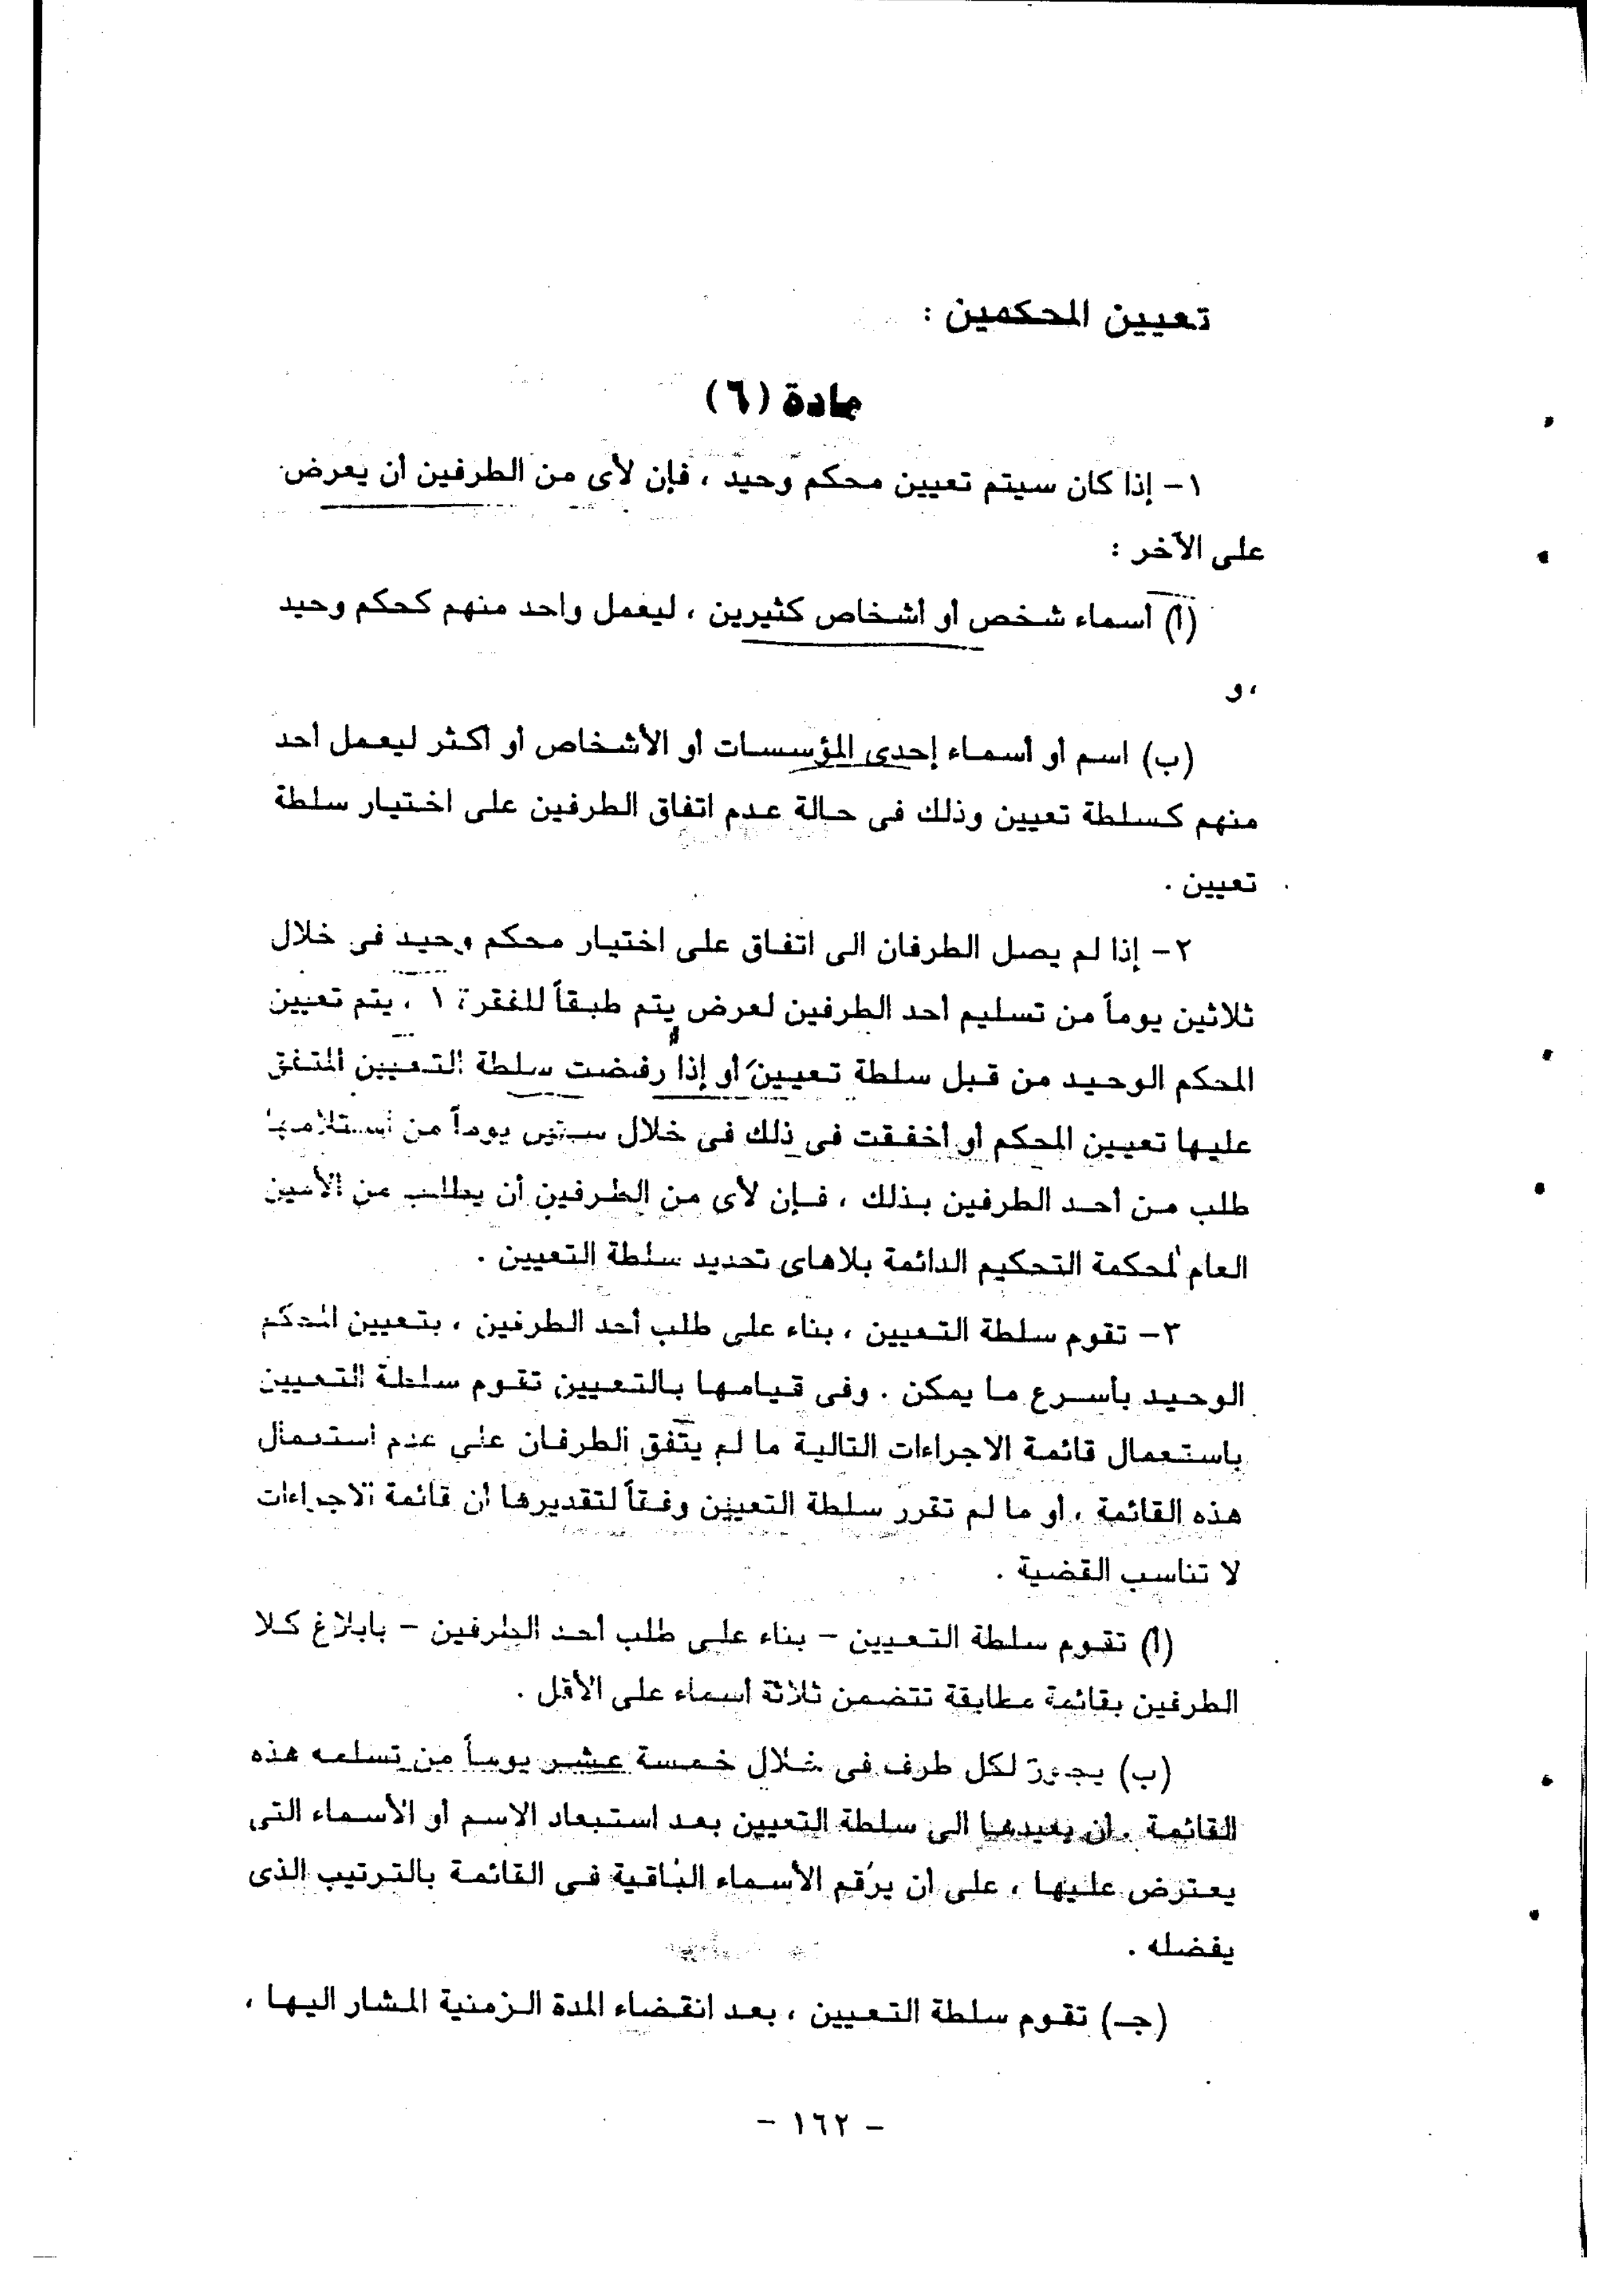 تعيين المحكمين :
مادة (٦)
١– إذا كان سيتم تعيين محكم وحيد ، فإن لأى من الطرفين أن يعرض
على الآخر :
(أ) أسماء شخص أو أشخاص كثيرين ، ليعمل واحد منهم كحكم وحيد
، و
(ب) اسم أو أسماء إحدى المؤسسات أو الأشخاص أو أكثر ليعمل أحد
منهم كسلطة تعيين وذلك فى حالة عدم اتفاق الطرفين على اختيار سلطة
تعيين .
٢– إذا لم يصل الطرفان الى اتفاق على اختيار محكم وحيد فى خلال
ثلاثين يوماً من تسليم أحد الطرفين لعرض يتم طبقاً للفقرة ١ ، يتم تعيين
المحكم الوحيد من قبل سلطة تعيين أو إذا رفضت سلطة التعيين المتفق
عليها تعيين المحكم أو أخفقت فى ذلك فى خلال ستين يوماً من استلامها
طلب من أحد الطرفين بذلك ، فإن لأى من الطرفين أن يطلب من الأمين
العام لمحكمة التحكيم الدائمة بلاهاى تحديد سلطة التعيين .
٣– تقوم سلطة التعيين ، بناء على طلب أحد الطرفين ، بتعيين المحكم
الوحيد بأسرع ما يمكن . وفى قيامها بالتعيين تقوم سلطة التعيين
باستعمال قائمة الاجراءات التالية ما لم يتفق الطرفان على عدم استعمال
هذه القائمة ، أو ما لم تقرر سلطة التعيين وفقاً لتقديرها أن قائمة الاجراءات
لا تناسب القضية .
(أ) تقوم سلطة التعيين – بناء على طلب أحد الطرفين – بابلاغ كلا
الطرفين بقائمة مطابقة تتضمن ثلاثة أسماء على الأقل .
(ب) يجوز لكل طرف فى خلال خمسة عشر يوماً من تسلمه هذه
القائمة . أن يعيدها الى سلطة التعيين بعد استبعاد الاسم أو الأسماء التى
يعترض عليها ، على أن يرقم الأسماء الباقية فى القائمة بالترتيب الذى
يفضله .
(جـ) تقوم سلطة التعيين ، بعد انقضاء المدة الزمنية المشار اليها ،
– ١٦٢ –